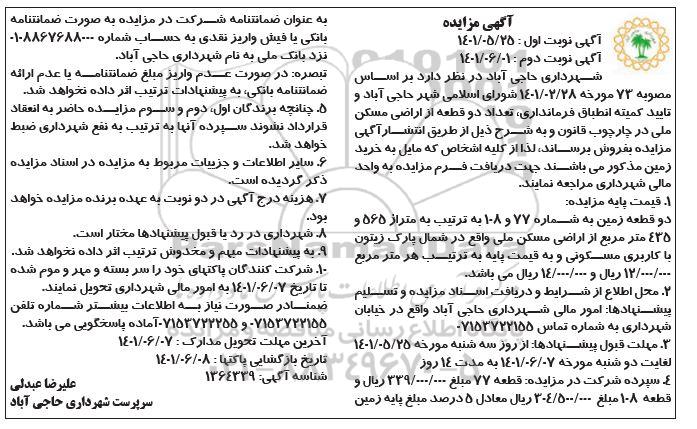 آگهی مزایده
آگهی نوبت اول : ۱۴۰۱/۰۵/۲۵
آگهی نوبت دوم : ۱۴۰۱/۰۶/۰۱
شهرداری حاجی آباد در نظر دارد بر اساس
مصوبه ۷۳ مورخه ۱۴۰۱/۰۲/۲۸ شورای اسلامی شهر حاجی آباد و
تایید کمیته انطباق فرمانداری، تعداد دو قطعه از اراضی مسکن
ملی در چارچوب قانون و به شرح ذیل از طریق انتشار آگهی
مزایده بفروش برساند، لذا از کلیه اشخاص که مایل به خرید
زمین مذکور می باشند جهت دریافت فرم مزایده به واحد
مالی شهرداری مراجعه نمایند.
۱. قیمت پایه مزایده:
دو قطعه زمین به شماره ۷۷ و ۱۰۸ به ترتیب به متراژ ۵۶۵ و
۴۳۵ متر مربع از اراضی مسکن ملی واقع در شمال پارک زیتون
با کاربری مسکونی و به قیمت پایه به ترتیب هر متر مربع
۱۲/۰۰۰/۰۰۰ ریال و ۱۴/۰۰۰/۰۰۰ ریال می باشد.
۲. محل اطلاع از شرایط و دریافت اسناد مزایده و تسلیم
پیشنهادها: امور مالی شهرداری حاجی آباد واقع در خیابان
شهرداری به شماره تماس ۰۷۱۵۳۷۲۲۱۵۵
۳. مهلت قبول پیشنهادها: از روز سه شنبه مورخه ۱۴۰۱/۰۵/۲۵
لغایت دو شنبه مورخه ۱۴۰۱/۰۶/۰۷ به مدت ۱۴ روز
۴. سپرده شرکت در مزایده: قطعه ۷۷ مبلغ ۳۳۹/۰۰۰/۰۰۰ ریال و
قطعه ۱۰۸ مبلغ ۳۰۴/۵۰۰/۰۰۰ ریال معادل ۵ درصد مبلغ پایه زمین
به عنوان ضمانتنامه شرکت در مزایده به صورت ضمانتنامه
بانکی یا فیش واریز نقدی به حساب شماره ۰۱۰۸۸۶۷۶۸۸۰۰۰
نزد بانک ملی به نام شهرداری حاجی آباد.
تبصره: در صورت عدم واریز مبلغ ضمانتنامه یا عدم ارائه
ضمانتنامه بانکی، به پیشنهادات ترتیب اثر داده نخواهد شد.
۵. چنانچه برندگان اول، دوم و سوم مزایده حاضر به انعقاد
قرارداد نشوند سپرده آنها به ترتیب به نفع شهرداری ضبط
خواهد شد.
۶. سایر اطلاعات و جزییات مربوط به مزایده در اسناد مزایده
ذکر گردیده است.
۷. هزینه درج آگهی در دو نوبت به عهده برنده مزایده خواهد
بود.
۸. شهرداری در رد یا قبول پیشنهادها مختار است.
۹. به پیشنهادات مبهم و مخدوش ترتیب اثر داده نخواهد شد.
۱۰. شرکت کنندگان پاکتهای خود را سر بسته و مهر و موم شده
تا تاریخ ۱۴۰۱/۰۶/۰۷ به امور مالی شهرداری تحویل نمایند.
ضمنا در صورت نیاز به اطلاعات بیشتر شماره تلفن
۰۷۱۵۳۷۲۲۱۵۵ و ۰۷۱۵۳۷۲۲۲۵۵ آماده پاسخگویی می باشد.
آخرین مهلت تحویل مدارک : ۱۴۰۱/۰۶/۰۷
تاریخ بازگشایی پاکتها : ۱۴۰۱/۰۶/۰۸
شناسه آگهی: ۱۳۶۴۳۳۹
علیرضا عبدلی
سرپرست شهرداری حاجی آباد